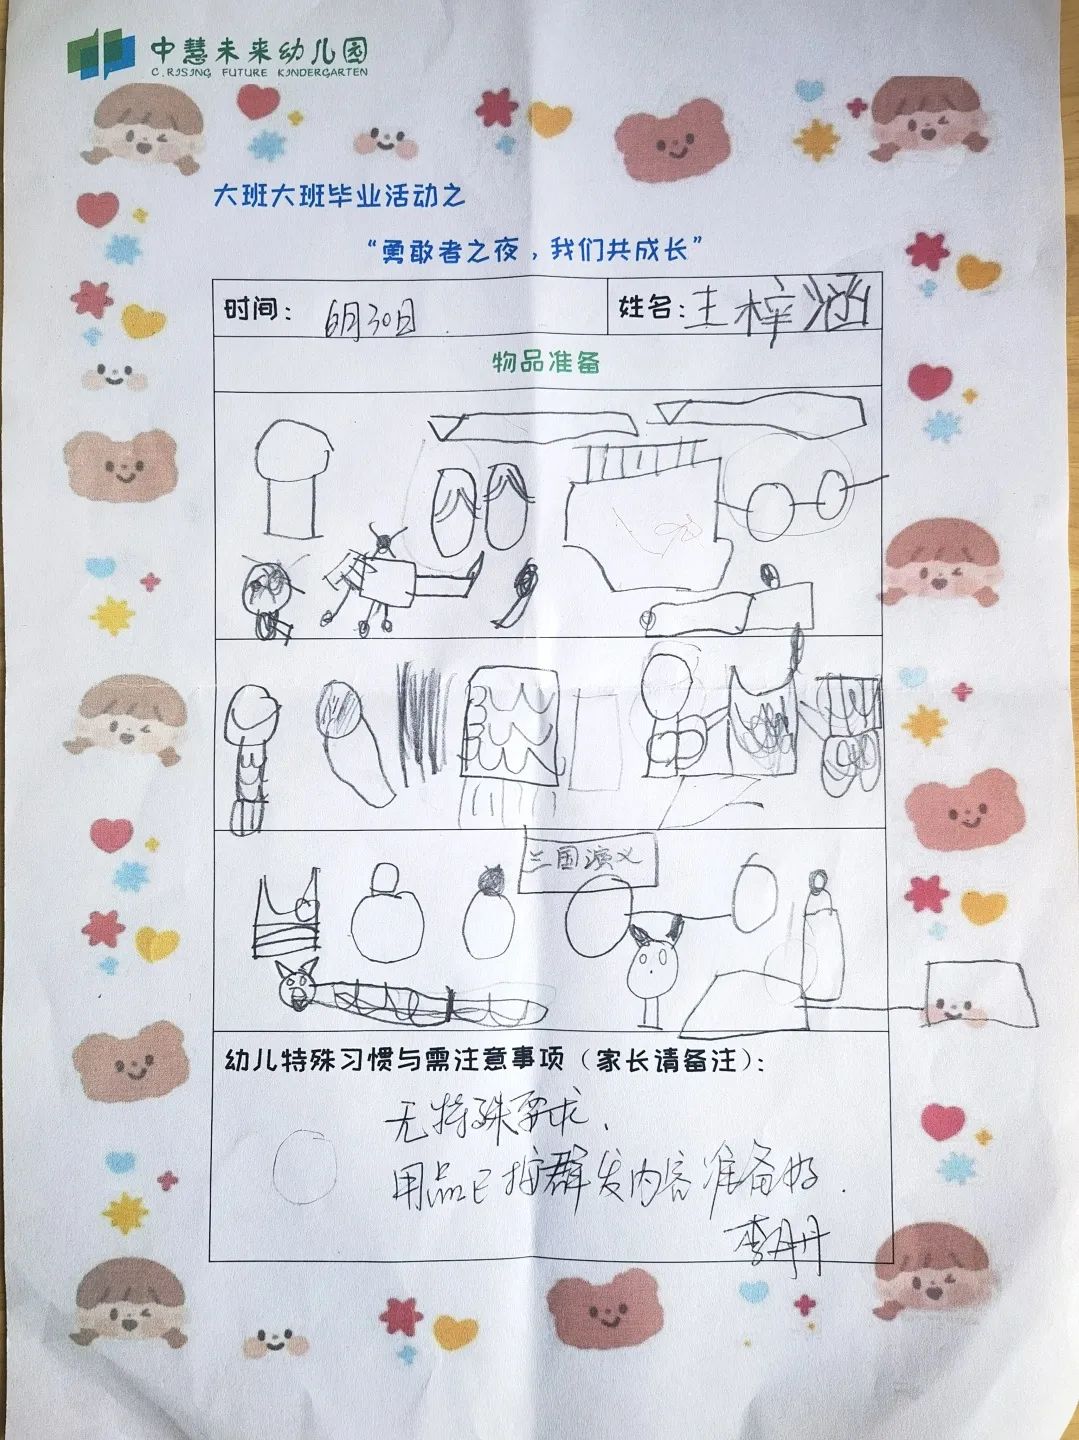 中慧未来幼儿园
C.RISING FUTURE KINDERGARTEN
大班大班毕业活动之
“勇敢者之夜，我们共成长”
时间： 6月30日 姓名：王梓涵
物品准备
三国演义
幼儿特殊习惯与需注意事项（家长请备注）：
无特殊要求.
用品已按群发内容准备好.
李丹丹